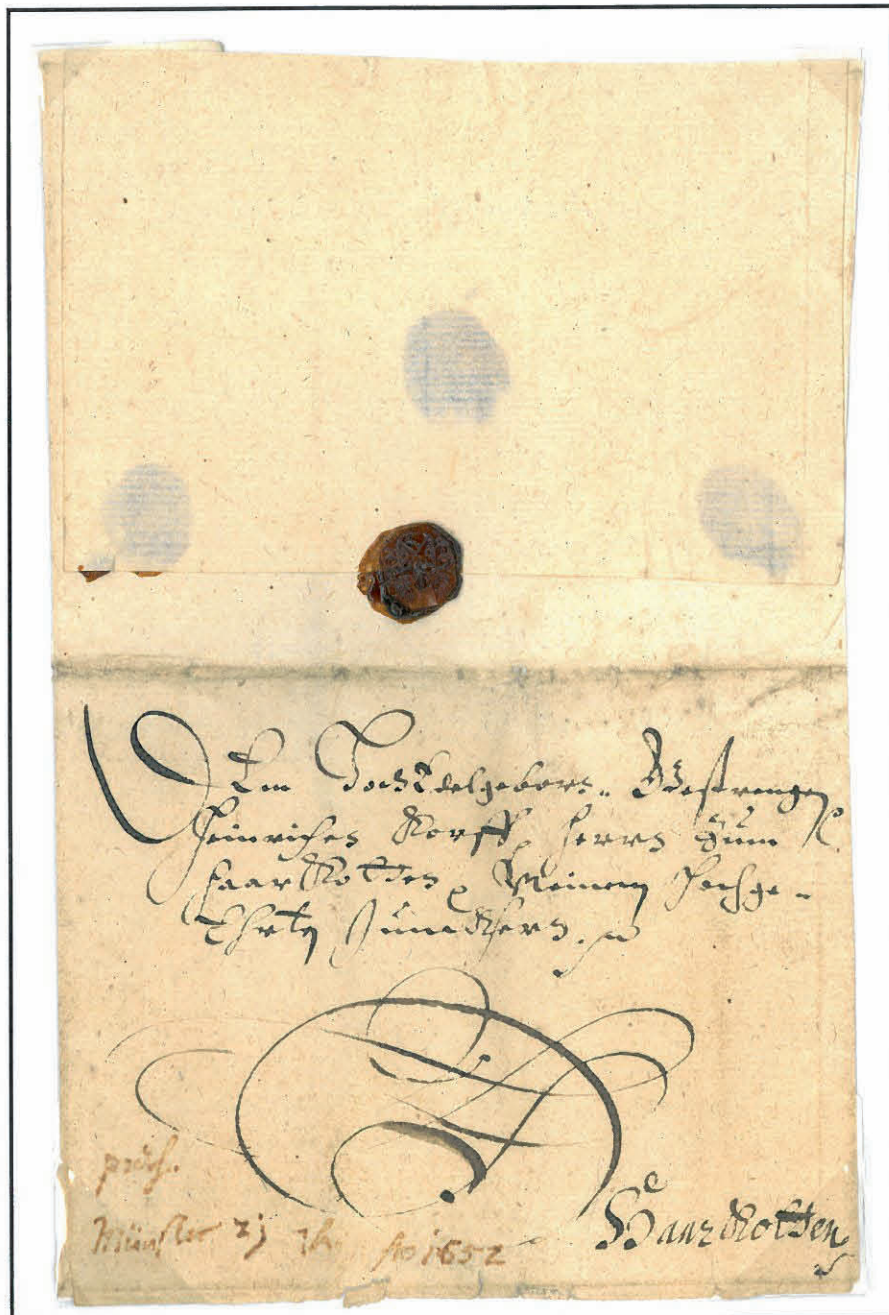 Dem HochEdelgeborn. Gestrengen
Heinrichen Korff, Herrn zum
HaarKotten, Meinem Hochge-
Ehrten Junckhern.
Münster 2j Ao 1652
HaarKotten